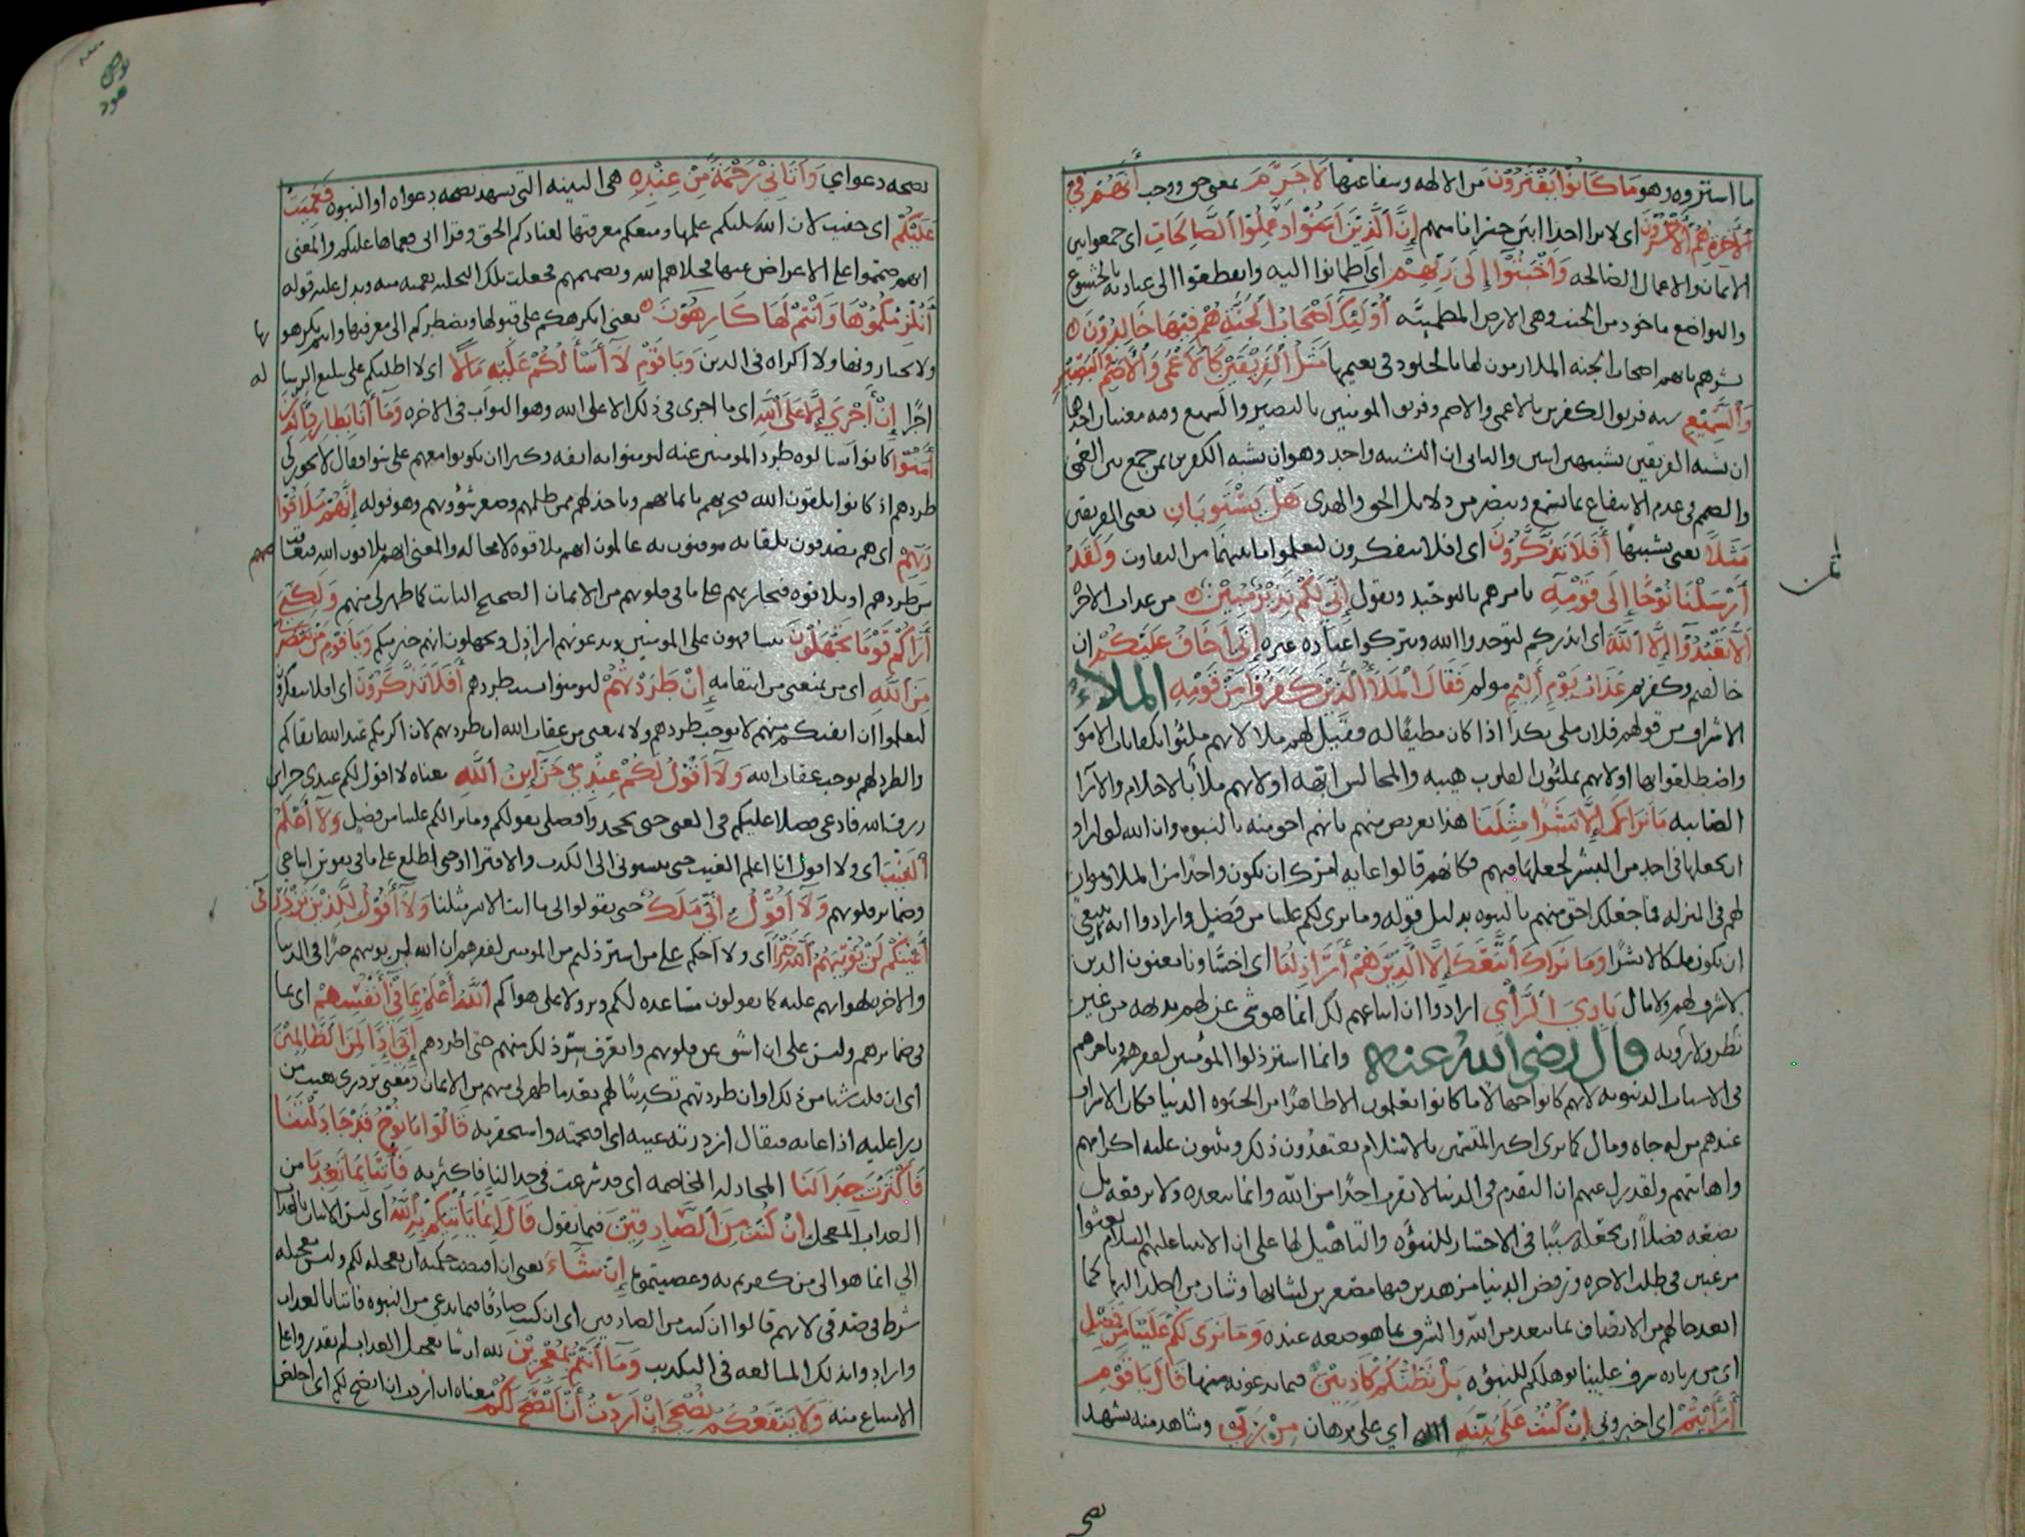 ما اشتروه وهو ما كانوا يفترون من الالهة وشفاعتها لا جرم بمعنى حق ووجب أنهم في
الآخرة هم الأخسرون اي لا ترا احدا ابين خسرانا منهم إن الذين آمنوا وعملوا الصالحات اي جمعوا بين
الايمان والاعمال الصالحه وأخبتوا إلى ربهم اي اطمانوا اليه وانقطعوا الى عبادته بالخشوع
والتواضع ماخوذ من الخبت وهي الارض المطمئنه أولئك أصحاب الجنة هم فيها خالدون
بشرهم بانهم اصحاب الجنه الملازمون لها بالخلود في نعيمها مثل الفريقين كالأعمى والأصم والبصير
والسميع شبه فريق الكفرين بالاعمى والاصم وفريق المومنين بالبصير والسميع وفيه معنيان احدهما
ان شبه الفريقين تشبيهين اثنين والثاني ان الشبه واحد وهو ان يشبه الكفرين بمن جمع بين العمى
والصمم في عدم الانتفاع بما يسمع ويبصر من دلائل الحق والهدى هل يستويان يعني الفريقين
مثلا يعني تشبيها أفلا تذكرون اي افلا تتفكرون لتعلموا ما بينهما من التفاوت ولقد
أرسلنا نوحا إلى قومه يامرهم بالتوحيد ويقول إني لكم نذير مبين من عذاب الاخره
ألا تعبدوا إلا الله اي انذركم لتوحدوا الله وتتركوا عبادة غيره إني أخاف عليكم ان
خالفتم وكفرتم عذاب يوم أليم مولم فقال الملأ الذين كفروا من قومه الملاء
الاشراف من قولهم فلان ملي بكذا اذا كان مطيقا له فقيل لهم ملا لانهم ملئوا بكفايات الامور
واضطلعوا بها او لانهم يملئون القلوب هيبه والمجالس ابهه او لانهم ملأ بالاحلام والآرا
الصايبه ما نراك إلا بشرا مثلنا هذا تعريض منهم بانهم احق منه بالنبوه وان الله لو اراد
ان يجعلها في احد من البشر لجعلها فيهم فكانهم قالوا غايه امرك ان تكون واحدا من الملا وموازن
لهم في المنزله فما جعلك احق منهم بالنبوه بدليل قوله وما نرى لكم علينا من فضل وارادوا انه ينبغي
ان يكون ملكا لا بشرا وما نراك اتبعك إلا الذين هم أراذلنا اي اخسنا ونا يعنون الذين
لا شرف لهم ولا مال بادي الرأي ارادوا ان اتباعهم لك انما هو شي عن لهم بديهه من غير
نظر ولا رويه قال رضي الله عنه وانما استرذلوا المؤمنين لفقرهم وتاخرهم
في الاسباب الدنيويه لانهم كانوا جهالا ما كانوا يعلمون الا ظاهرا من الحيوه الدنيا فكان الاشراف
عندهم من له جاه ومال كما ترى اكثر المتسمين بالاسلام يعتقدون ذلك ويبنون عليه اكرامهم
واهانتهم ولقد زل عنهم ان التقدم في الدنيا لا يقرب احدا من الله وانما يبعده ولا يرفعه بل
يضعه فضلا ان يجعله سببا في الاختيار للنبؤه والتاهيل لها على ان الانبيا عليهم السلام بعثوا
مرغبين في طلب الاخره ورفض الدنيا مزهدين فيها مصغرين لشانها وشان من اخلد اليها فما
ابعد حالهم من الاتصاف بما يبعد من الله والشرف بما هو ضعه عنده وما نرى لكم علينا من فضل
اي من زياده شرف علينا توهلكم للنبؤه بل نظنكم كاذبين فيما تدعونه منها قال يا قوم
أرأيتم اي اخبروني إن كنت على بينة اي على برهان من ربي وشاهد منه يشهد
ثمن
يونس
هود
بصحه دعواي وآتاني رحمة من عنده هي البينه التي تشهد بصحه دعواه او النبوه فعميت
عليكم اي خفيت لان الله سلبكم علمها ومنعكم معرفتها لعنادكم الحق وقرا ابي فعماها عليكم والمعنى
انهم صمموا على الاعراض عنها فخلاهم الله وتصميمهم فجعلت تلك التخليه تعميه منه ويدل عليه قوله
أنلزمكموها وأنتم لها كارهون يعني انكرهكم على قبولها ونضطركم الى معرفتها وانتم تكرهو نها
ولا تختارونها ولا اكراه في الدين ويا قوم لا أسألكم عليه مالا اي لا اطلبكم على تبليع الرساله
اجرا إن أجري إلا على الله اي ما اجرى في ذلك الا على الله وهو الثواب في الاخره وما أنا بطارد الذين
آمنوا كانوا سالوه طرد المومنين عنه ليومنوا به انفه وكبرا ان يكونوا معهم على سوا فقال لا يجوز لي
طردهم اذ كانوا يلقون الله فيجزيهم بايمانهم وياخذ لهم ممن ظلمهم وصغر شؤونهم وهو قوله إنهم ملاقوا
ربهم اي هم يصدقون بلقائه موقنون به عالمون انهم يلاقوه لا محاله والمعنى انهم يلاقون الله فينتقم
من طردهم او يلاقوه فيجازيهم على ما في قلوبهم من الايمان الصحيح الثابت كما ظهر لي منهم ولكني
أراكم قوما تجهلون تتسافهون على المومنين وتدعونهم اراذل وتجهلون انهم خير منكم ويا قوم من ينصرني
من الله اي من يمنعني من انتقامه إن طردتهم ليومنوا بسبب طردهم أفلا تذكرون اي افلا تتفكرون
لتعلموا ان انفتكم منهم لا توجب طردهم ولا يمنعني من عقاب الله ان طردتهم لان اكرمكم عند الله اتقاكم
والطرد لهم يوجب عقاب الله ولا أقول لكم عندي خزاين الله معناه لا اقول لكم عندي خزاين
رزق الله فادعي فضلا عليكم في الغنى حتى تجحدوا فضلي بقولكم وما نرا لكم علينا من فضل ولا أعلم
الغيب اي ولا اقول انا اعلم الغيب حتى تنسبوني الى الكذب والافترا او حتى اطلع على ما في نفوس اتباعي
وضمائر قلوبهم ولا أقول إني ملك حتى يقولوا لي ما انت الا بشر مثلنا ولا أقول للذين تزدري
أعينكم لن يؤتيهم الله خيرا اي ولا احكم على من استرذلتم من المومنين لفقرهم ان الله لن يوتيهم خيرا في الدنيا
والاخره لهوانهم عليه كما تقولون مساعده لكم ونزولا على هواكم الله أعلم بما في أنفسهم اي بما
في ضمائرهم وليس علي ان اشق عن قلوبهم واتعرف سر ذلك منهم حتى اطردهم إني إذا لمن الظالمين
أي ان قلت شيا من ذلك او ان طردتهم تكذيبا لهم بعد ما ظهر لي منهم من الايمان ومعنى تزدري تعيب من
زرا عليه اذا عابه فيقال ازدرته عينه اي اقتحمته واستحقرته قالوا يا نوح قد جادلتنا
فأكثرت جدالنا المجادله المخاصمه اي قد شرعت في جدالنا فاكثرته فأتنا بما تعدنا من
العذاب المعجل إن كنت من الصادقين فيما تقول قال إنما يأتيكم به الله اي ليس الاتيان بالعذاب
الي انما هو الى من كفرتم به وعصيتموه إن شاء يعني ان اقتضت حكمته ان يعجله لكم وليس تعجيله
شرط في صدقي لانهم قالوا ان كنت من الصادقين اي ان كنت صادقا فيما تدعي من النبوه فاتنا بالعذاب
وارادوا بذلك المبالغه في التكذيب وما أنتم بمعجزين لله ان شا تعجيل العذاب لم تقدروا على
الامتناع منه ولا ينفعكم نصحي إن أردت أن أنصح لكم معناه ان اردت ان انصح لكم اي اخلص